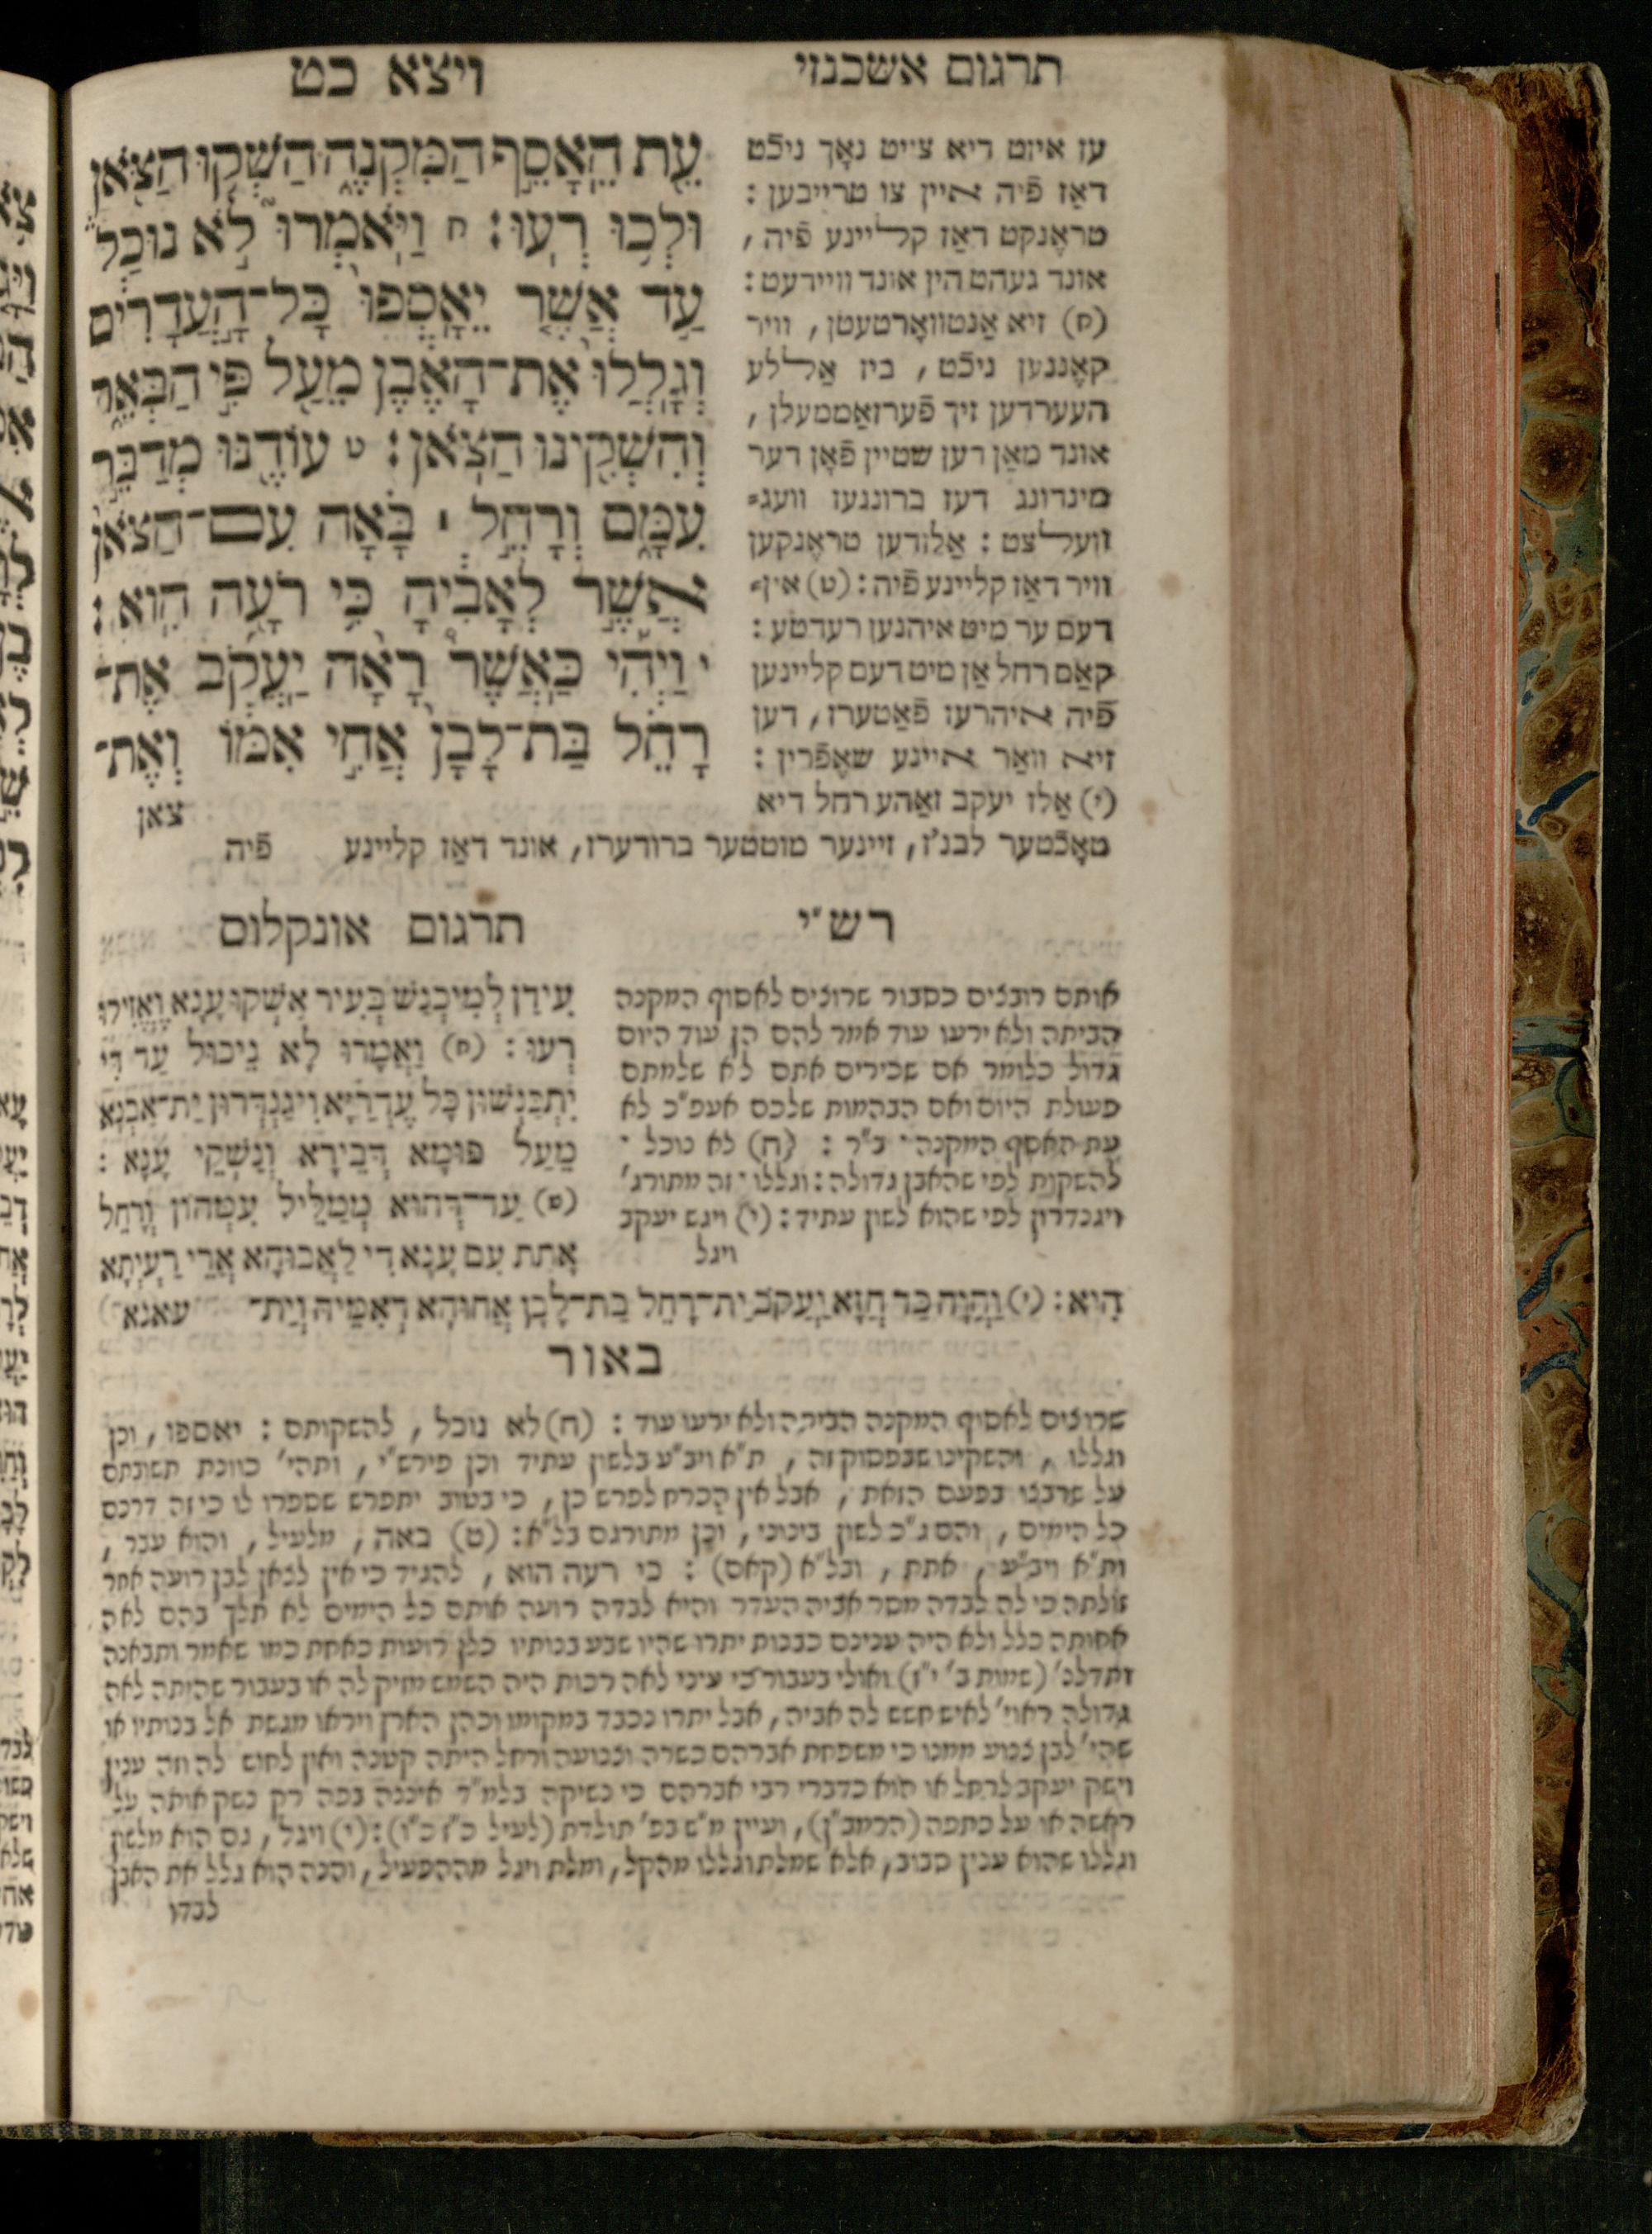 תרגום אשכנזי
ויצא כט
עֵ֖ת הֵאָסֵ֣ף הַמִּקְנֶ֑ה הַשְׁק֥וּ הַצֹּ֖אן
וּלְכ֥וּ רְעֽוּ׃ ח וַיֹּאמְרוּ֮ לֹ֣א נוּכַל֒
עַ֣ד אֲשֶׁ֤ר יֵאָֽסְפוּ֙ כָּל־הָ֣עֲדָרִ֔ים
וְגָֽלֲלוּ֙ אֶת־הָאֶ֔בֶן מֵעַ֖ל פִּ֣י הַבְּאֵ֑ר
וְהִשְׁקִ֖ינוּ הַצֹּֽאן׃ ט עוֹדֶ֖נּוּ מְדַבֵּ֣ר
עִמָּ֑ם וְרָחֵ֣ל ׀ בָּ֗אָה עִם־הַצֹּאן֙
אֲשֶׁ֣ר לְאָבִ֔יהָ כִּ֥י רֹעָ֖ה הִֽוא׃
י וַיְהִ֡י כַּאֲשֶׁר֩ רָאָ֨ה יַעֲקֹ֜ב אֶת־
רָחֵ֗ל בַּת־לָבָן֙ אֲחִ֣י אִמּ֔וֹ וְאֶת־
צאן
עז איזט דיא צייט נאָך ניכֿט
דאַז פֿיה איין צו טרייבען :
טראֶנקט דאַז קליינע פֿיה ,
אונד געהט הין אונד וויידעט :
(ח) זיא אַנטוואָרטעטן , וויר
קאֶננען ניכֿט , ביז אַללע
העערדען זיך פֿערזאַממעלן ,
אונד מאַן דען שטיין פֿאָן דער
מינדונג דעז ברוננען וועג=
וועלצט : אַלזדען טראֶנקען
וויר דאַז קליינע פֿיה : (ט) אין=
דעם ער מיט איהנען רעדטע :
קאַם רחל אַן מיט דעם קליינען
פֿיה איהרעז פֿאַטערז , דען
זיא וואַר איינע שאֶפֿרין :
(י) אַלז יעקב זאַהע רחל דיא
טאָכֿטער לבנ'ז , זיינער מוטטער ברודערז , אונד דאַז קליינע פֿיה
רש"י
אותם רובצים כסבור שרוצים לאסוף המקנה
הביתה ולא ירעו עוד אמר להם הן עוד היום
גדול כלומר אם שכירים אתם לא שלמתם
פעולת היום ואם הבהמות שלכם אעפ"כ לא
עת האסף המקנה · ב"ר : (ח) לא נוכל ·
להשקות לפי שהאבן גדולה : וגללו · זה מתורג'
ויגנדרון לפי שהוא לשון עתיד : (י) ויגש יעקב
ויגל
תרגום אונקלוס
עִידַן לְמִיכְנַשׁ בְּעִיר אַשְׁקוּ עָנָא וֶאֱזִילוּ
רְעוּ : (ח) וַאֲמָרוּ לָא נִיכוּל עַד דִּי
יִתְכַּנְשׁוּן כָּל עֶדְרַיָּא וִיגַנְדְּרוּן יַת־אַבְנָא
מֵעַל פּוּמָא דְּבֵירָא וְנַשְׁקֵי עָנָא :
(ט) עַד־דְּהוּא מְמַלֵּיל עִמְּהוֹן וְרָחֵל
אָתַת עִם עָנָא דִּי לַאֲבוּהָא אֲרֵי רַעֲיְתָא
הִיא : (י) וַהֲוָה כַּד חֲזָא יַעֲקֹב יַת־רָחֵל בַּת־לָבָן אֲחוּהָא דְּאִמֵּיהּ וְיַת־ עאנא
באור
שרוצים לאסוף המקנה הביתה ולא ירעו עוד : (ח) לא נוכל , להשקותם : יאספו , וכן
וגללו , והשקינו שבפסוק זה , ת"א ויב"ע בלשון עתיד וכן פירש"י , ותהי' כוונת תשובתם
על שרבצו בפעם הזאת , אבל אין הכרח לפרש כן , כי בטוב יתפרש שספרו לו כי זה דרכם
כל הימים , והם ג"כ לשון בינוני , וכן מתורגם בל"א : (ט) באה , מלעיל , והוא עבר ,
ות"א ויב"ע , אתת , ובל"א (קאם) : כי רעה הוא , להגיד כי אין לצאן לבן רועה אחר
זולתה כי לה לבדה מסר אביה העדר והיא לבדה רועה אותם כל הימים לא תלך בהם לאה
אחותה כלל ולא היה ענינם כבנות יתרו שהיו שבע בנותיו כלן רועות כאחת כמו שאמר ותבאנה
ותדלנ' (שמות ב' י"ו) ואולי בעבור כי עיני לאה רכות היה השמש מזיק לה או בעבור שהיתה לאה
גדולה ראוי' לאיש חשש לה אביה , אבל יתרו נכבד במקומו וכהן הארץ ויראו מגשת אל בנותיו או
שהי' לבן צנוע ממנו כי משפחת אברהם כשרה וצנועה ורחל היתה קטנה ואין לחוש לה וזה ענין
וישק יעקב לרחל או הוא כדברי רבי אברהם כי נשיקה בלמ"ד איננה בפה רק נשק אותה על
ראשה או על כתפה (הרמב"ן) , ועיין מ"ש בפ' תולדת (לעיל כ"ז כ"ו) : (י) ויגל , גם הוא מלשון
וגללו שהוא ענין סבוב , אלא שמלת וגללו מהקל , ומלת ויגל מההפעיל , והנה הוא גלל את האבן
לבדו